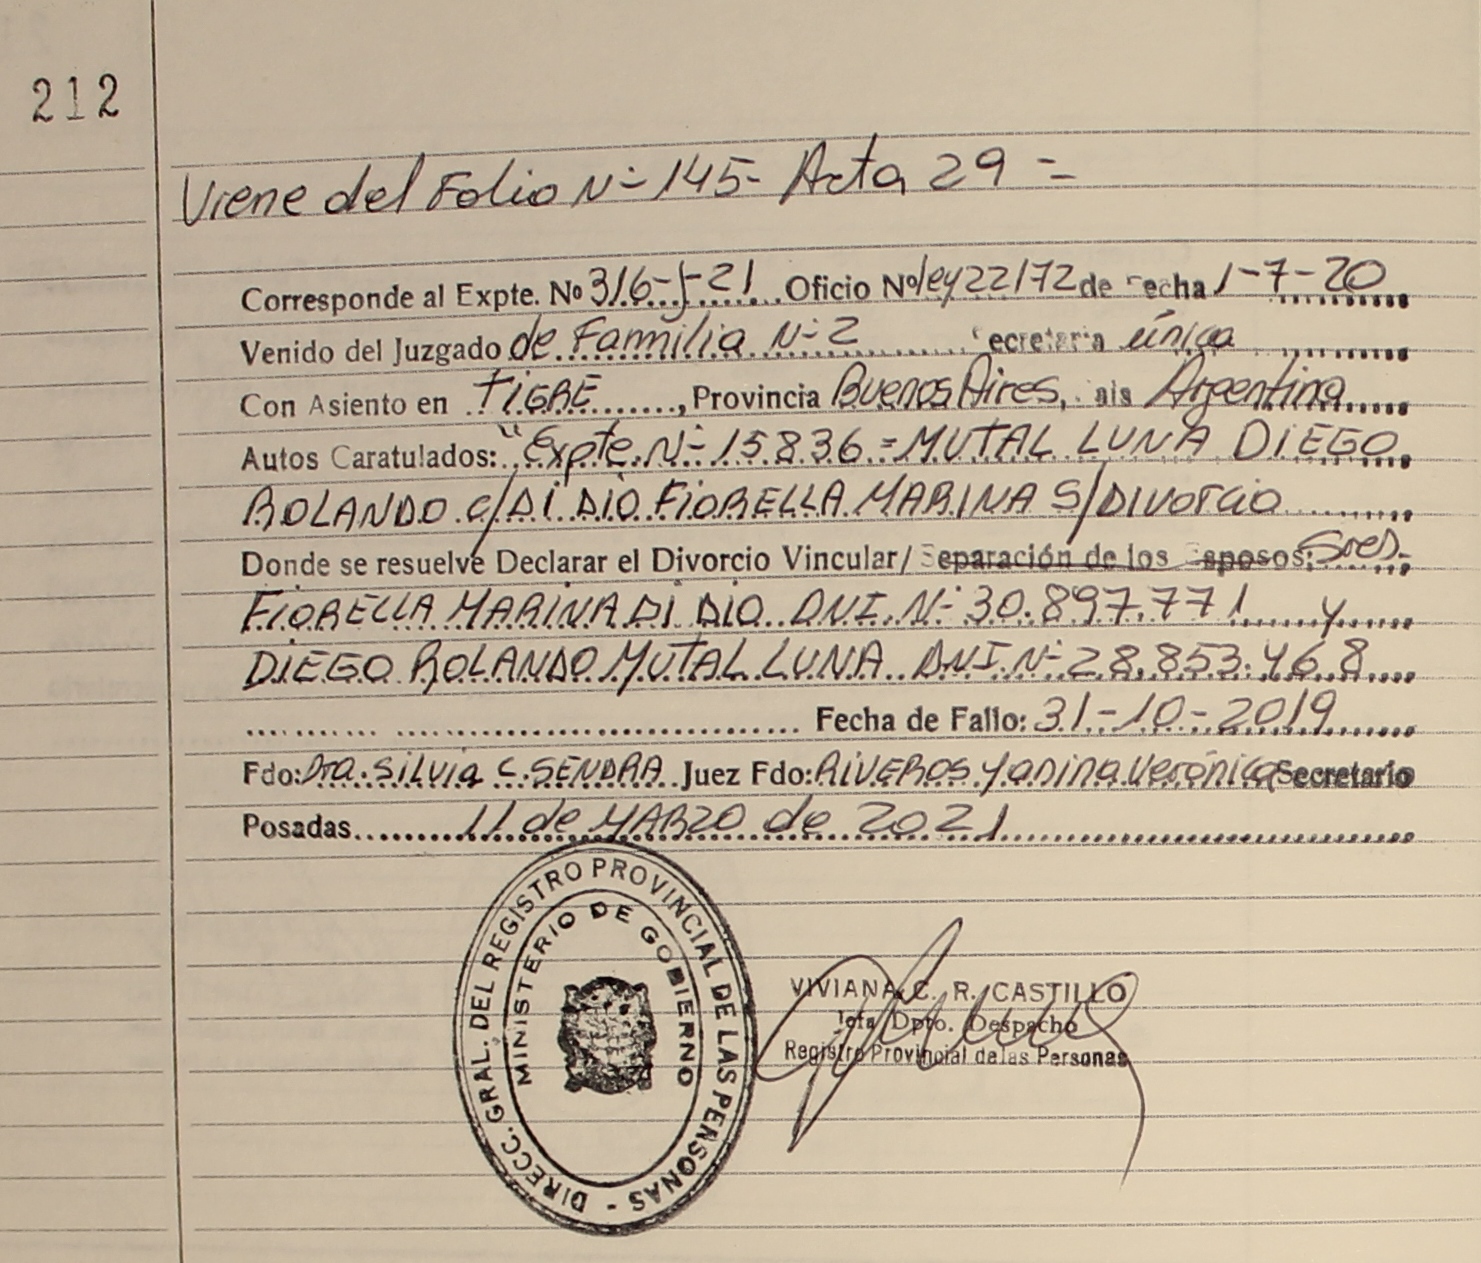 212
Viene del Folio Nº 145- Acta 29 =
Corresponde al Expte. No 316-J-21 Oficio Nº ley 22172 de Fecha 1-7-20
Venido del Juzgado de Familia Nº 2 Secretaria única
Con Asiento en TIGRE, Provincia Buenos Aires, ais Argentina
Autos Caratulados: "Expte. Nº 15.836 = MUTAL LUNA DIEGO
ROLANDO c/ DI DIO FIORELLA MARINA S/ DIVORCIO
Donde se resuelve Declarar el Divorcio Vincular/ Separación de los Esposos: Sres.
FIORELLA MARINA DI DIO DNI. Nº 30.897.771 y
DIEGO ROLANDO MUTAL LUNA DNI. Nº 28.853.468
Fecha de Fallo: 31-10-2019
Fdo: Dra. SILVIA C. SENDRA Juez Fdo: RIVEROS Yanina Verónica Secretario
Posadas 11 de MARZO de 2021
DIRECC. GRAL. DEL REGISTRO PROVINCIAL DE LAS PENSONAS -
MINISTERIO DE GOBIERNO
VIVIANA C. R. CASTILLO
Jefa Dpto. Despacho
Registro Provincial de las Personas